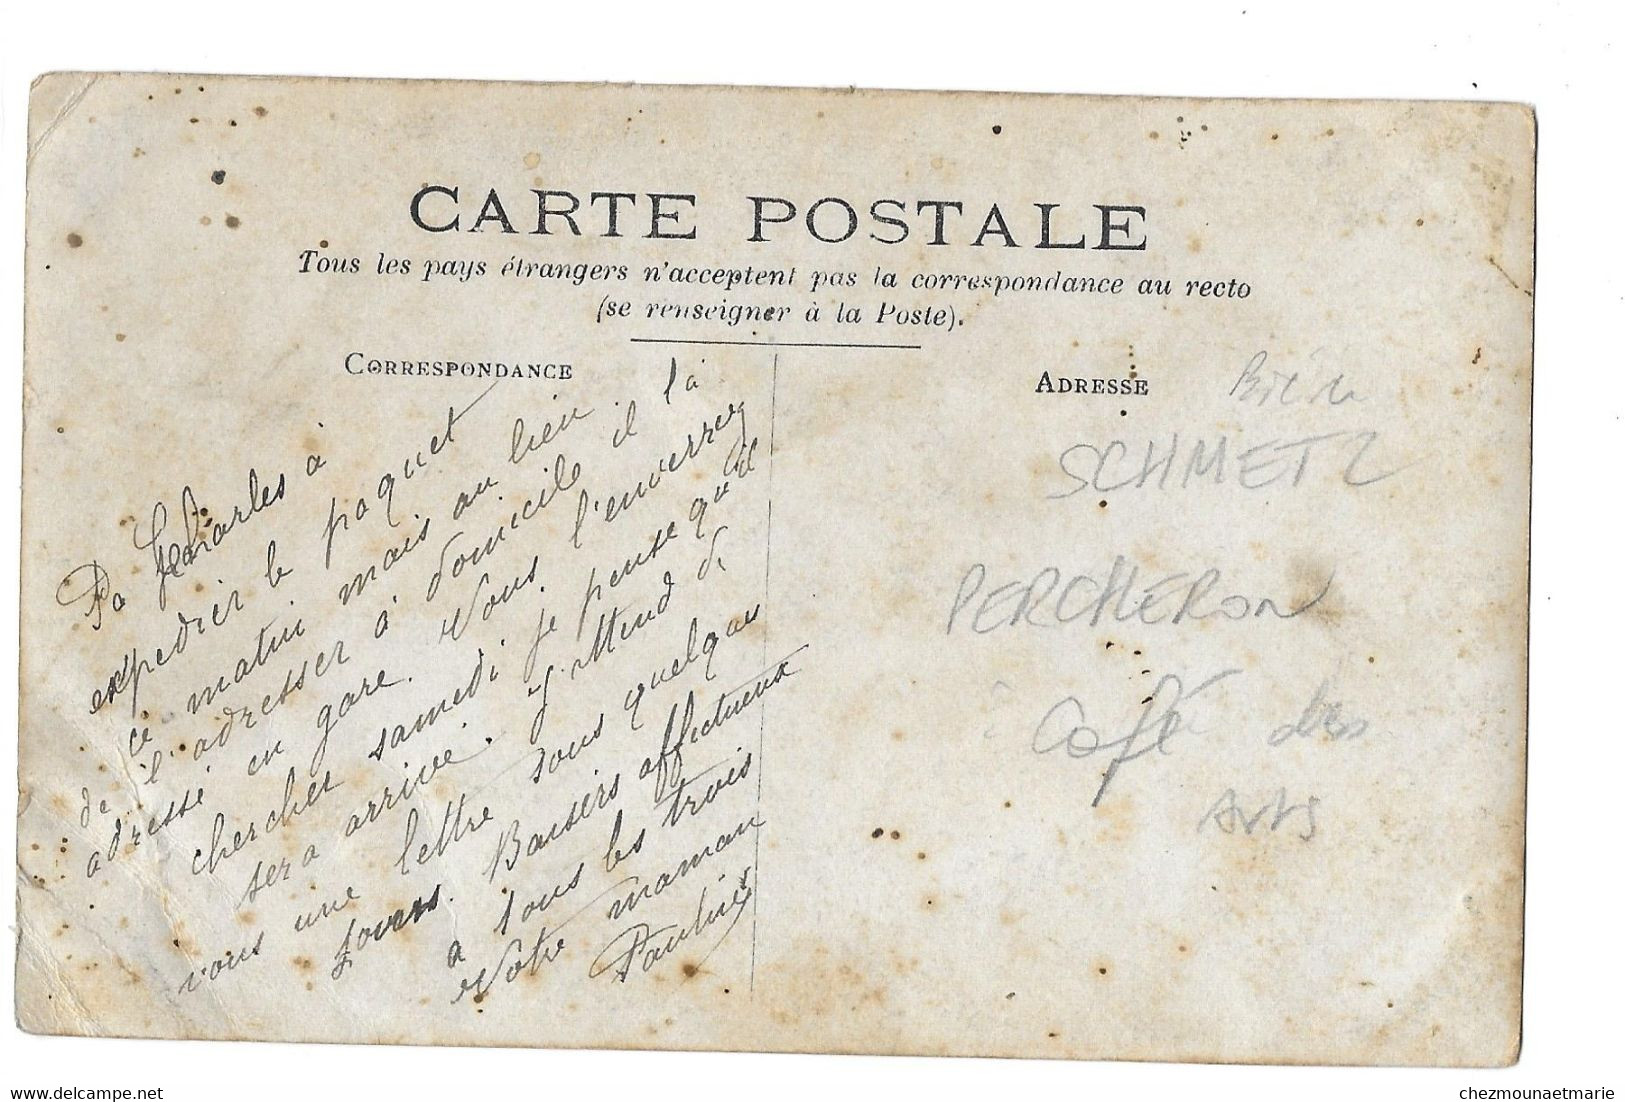 CARTE POSTALE
Tous les pays étrangers n'acceptent pas la correspondance au recto
(se renseigner à la Poste).
CORRESPONDANCE
Charles à
expedier le paquet
ce matin mais au lieu
de l'adresser à domicile il l'a
adressé en gare. Vous l'enverrez
chercher samedi je pense qu'il
sera arrivé. J'attend de
vous une lettre sous quelques
jours. Baisers affectueux
a tous les trois
Votre maman
Pauline
ADRESSE
SCHMETZ
PERCHERON
à Café des
Arts
delcampe.net
chezmounaetmarie